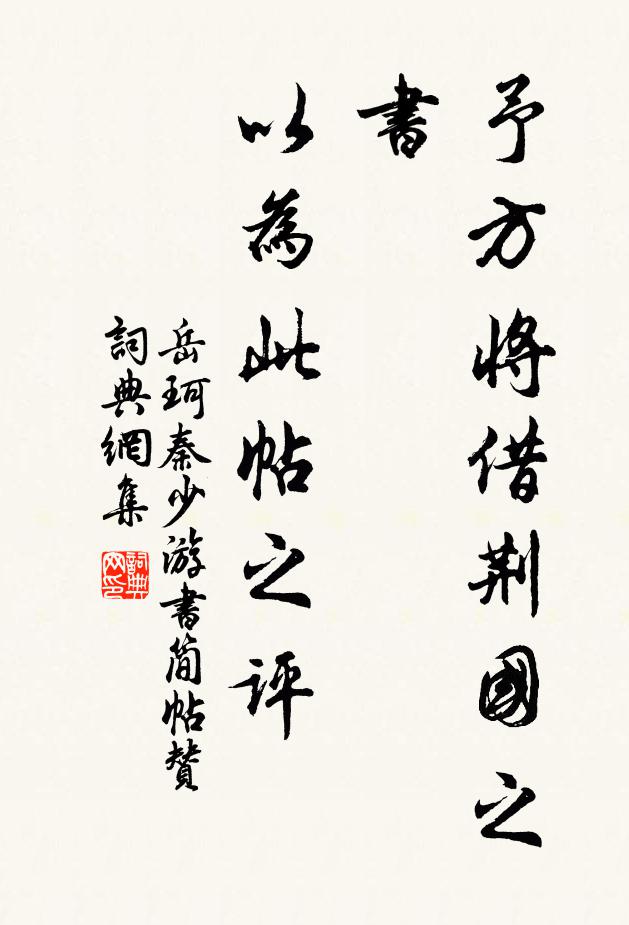 予方將借荆國之
書
以為此帖之評
岳珂秦少游書簡帖贊
詞典網集
詞典
网印